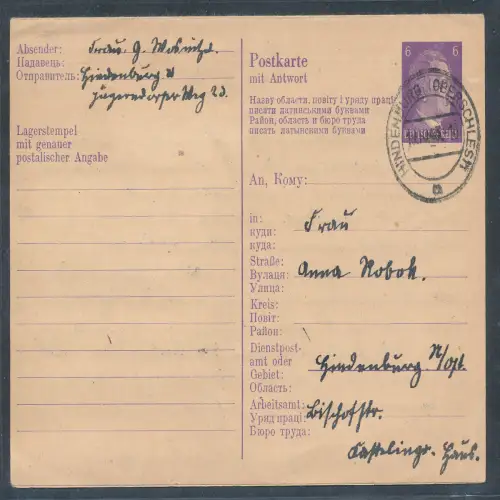 Absender: Frau G.
Надавець:
Отправитель: Hindenburg
Jägerndorfer Weg 23.
Lagerstempel
mit genauer
postalischer Angabe
Postkarte
mit Antwort
Назву области, повіту і уряду праці
писати латинськими буквами
Район, область и бюро труда
писать латынскими буквами
6 6
HINDENBURG (OBERSCHLES)
a
An, Кому:
in: Frau
куди:
куда:
Straße: Anna Robok.
Вулиця:
Улица:
Kreis:
Повіт:
Район:
Dienstpost-
amt oder Hindenburg
Gebiet:
Область:
Arbeitsamt: Bischofstr.
Уряд праці:
Бюро труда:
Haus.